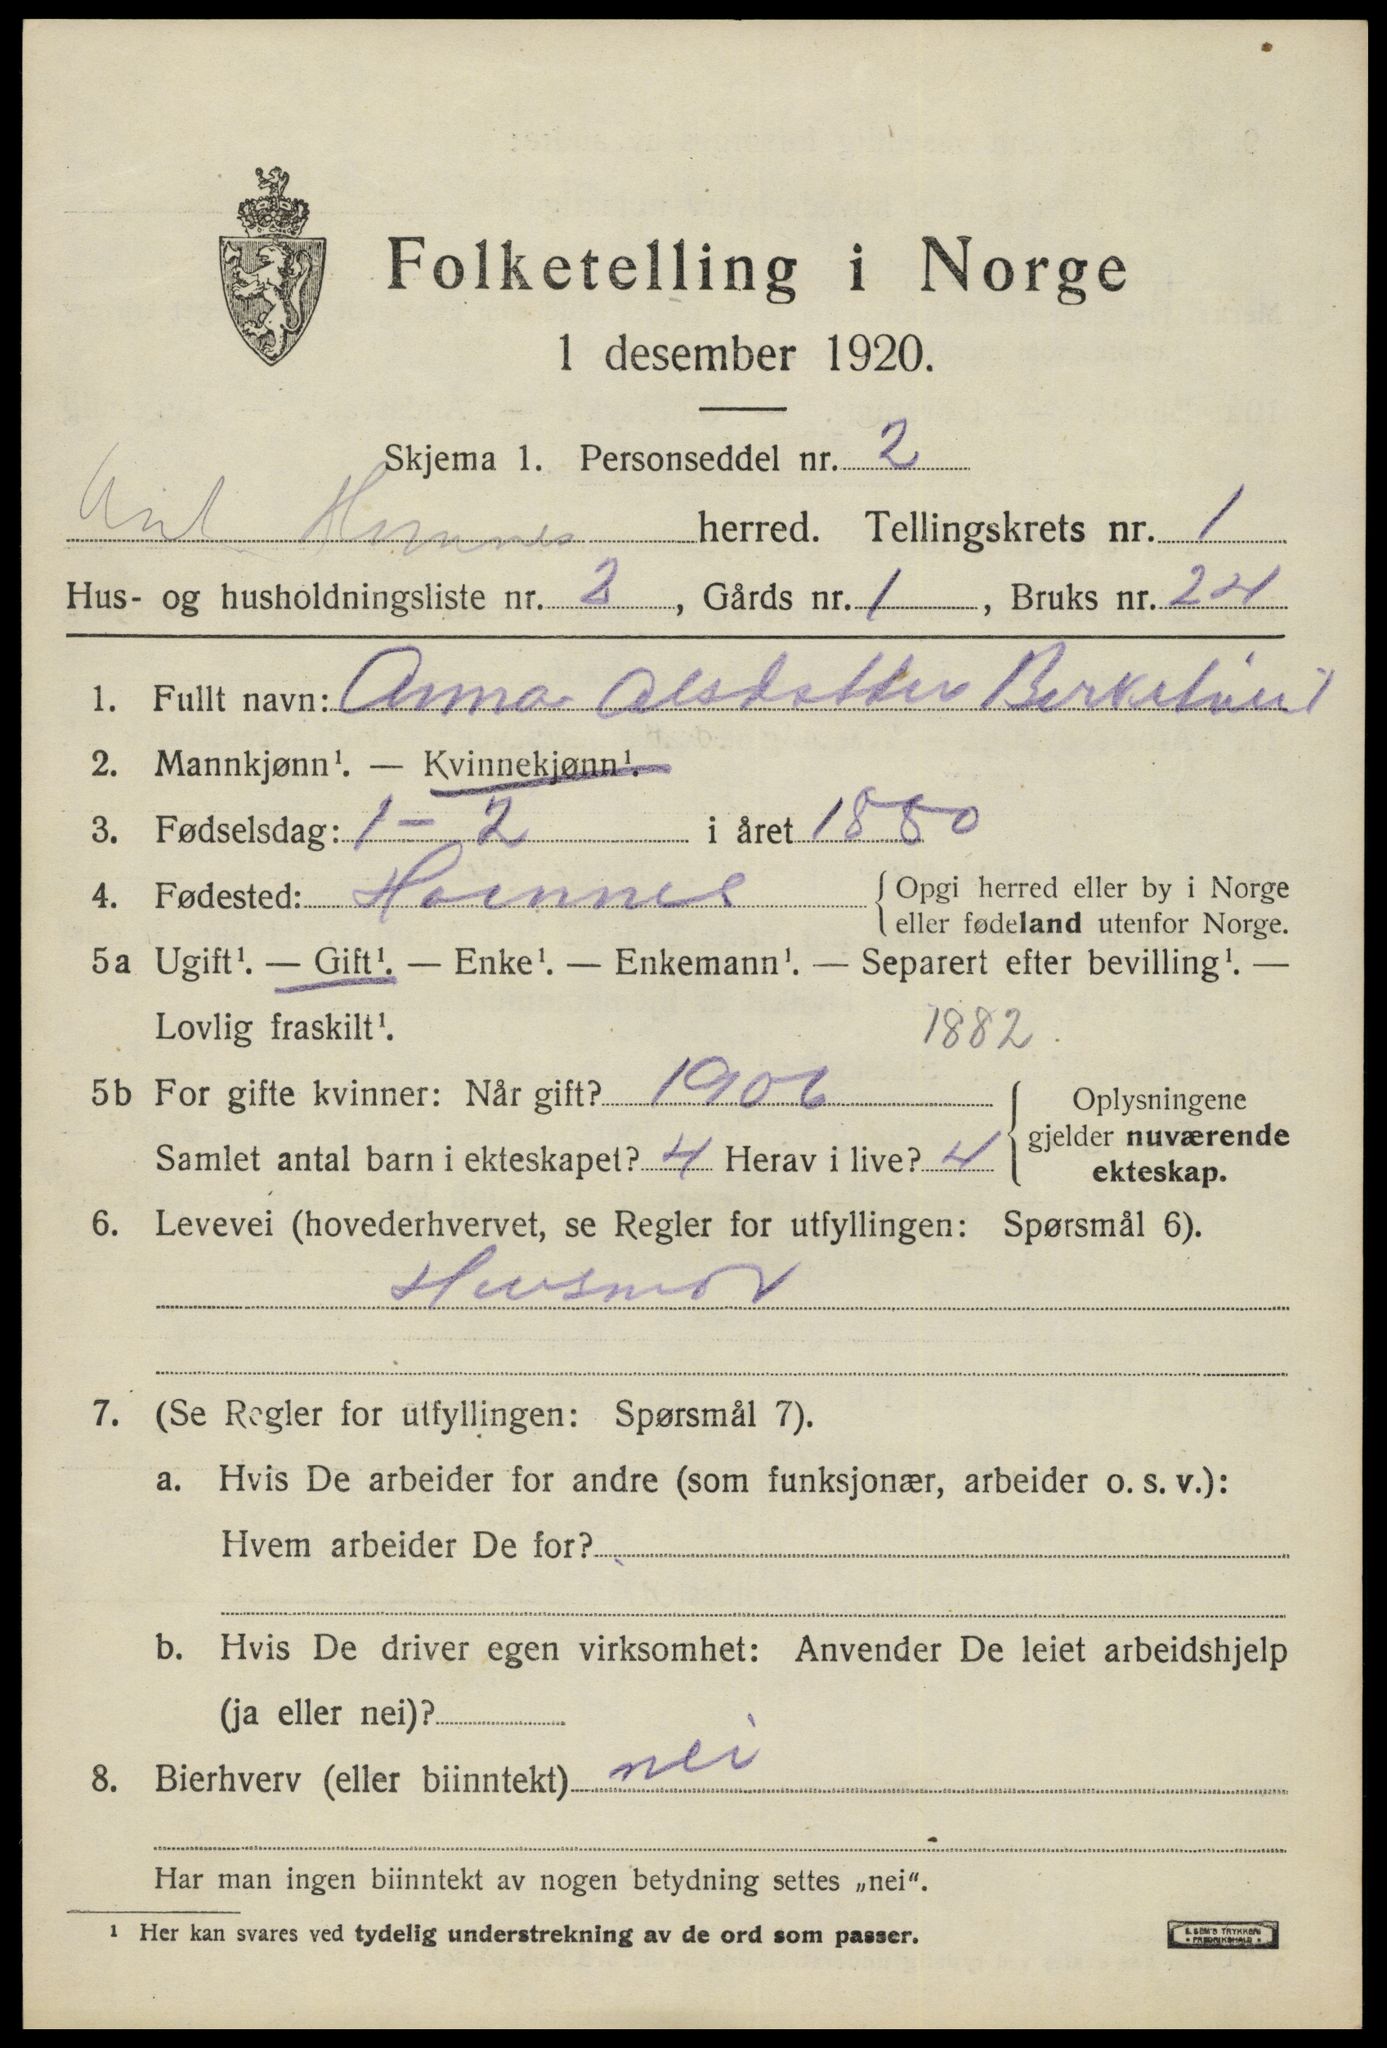 Folketelling i Norge
1 desember 1920.
Skjema 1. Personseddel nr. 2
Hornnes herred. Tellingskrets nr. 1
Hus- og husholdningsliste nr. 3, Gårds nr. 1, Bruks nr. 24
1. Fullt navn: Anna Olsdatter
2. Mannkjønn¹. — Kvinnekjønn¹.
3. Fødselsdag: 1 - 2 i året 1880
4. Fødested: Hornnes { Opgi herred eller by i Norge
eller fødeland utenfor Norge.
5a Ugift¹. — Gift¹. — Enke¹. — Enkemann¹. — Separert efter bevilling¹. —
Lovlig fraskilt¹.
1882
5b For gifte kvinner: Når gift? 1906
Samlet antal barn i ekteskapet? 4 Herav i live? 4
Oplysningene
gjelder nuværende
ekteskap.
6. Levevei (hovederhvervet, se Regler for utfyllingen: Spørsmål 6).
Husmor
7. (Se Regler for utfyllingen: Spørsmål 7).
a. Hvis De arbeider for andre (som funksjonær, arbeider o. s. v.):
Hvem arbeider De for?
b. Hvis De driver egen virksomhet: Anvender De leiet arbeidshjelp
(ja eller nei)?
8. Bierhverv (eller biinntekt) nei
Har man ingen biinntekt av nogen betydning settes „nei“.
¹ Her kan svares ved tydelig understrekning av de ord som passer.